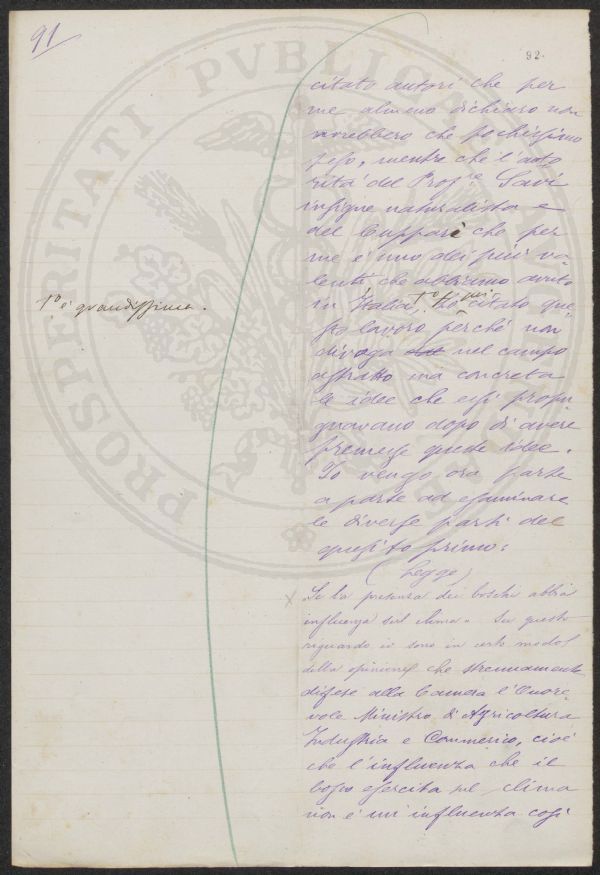 91
92.
citato autori che per
me almeno dichiaro non
vorrebbero che pochissimo
peso, mentre che l'auto
rità del Prof.re Savi
insigne naturalista e
del Cuppari che per
me è uno dei più va
lenti che abbiamo avuto
in Italia, 1° Ho citato que
sto lavoro perché non
divaga nel campo
astratto ma concreta
le idee che essi propu
gnavano dopo di avere
premesse queste idee.
Io vengo ora parte
a parte ad esaminare
le diverse parti del
quesito primo:
(Legge)
Se la presenza dei boschi abbia
influenza sul clima. Su questo
riguardo io sono in certo modo
della opinione che strenuamente
difese alla Camera l'Onore-
vole Ministro di Agricoltura
Industria e Commercio, cioè
che l'influenza che il
bosco esercita sul clima
non è un'influenza così
1° è grandissima.
PROSPERITATI PVBLICAE